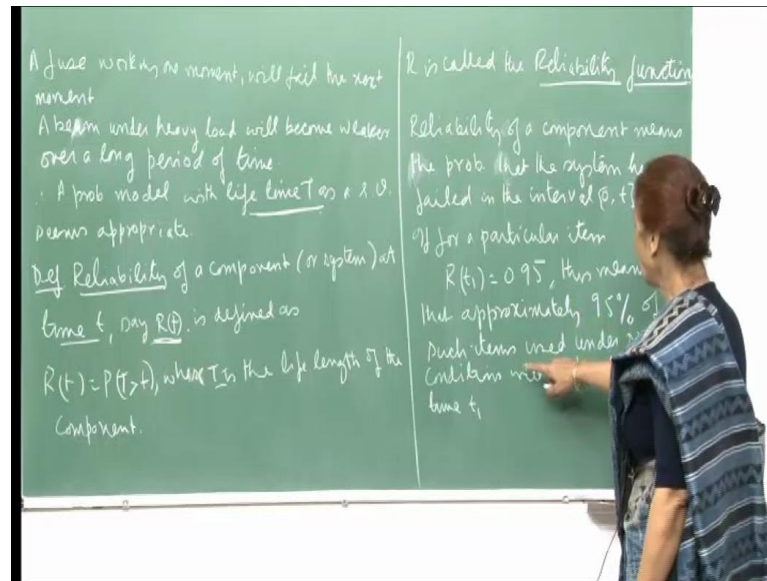 A fuse working one moment, will fail the next
moment
A beam under heavy load will become weaker
over a long period of time.
∴ A prob model with life time T as a r.v.
seems appropriate.
Def Reliability of a component (or system) at
time t, say R(t), is defined as
R(t) = P(T>t), where T is the life length of the
component.
R is called the Reliability function
Reliability of a component means
the prob. that the system
failed in the interval [0, t]
If for a particular item
R(t₁) = 0.95, this means
that approximately 95% of
such items used under
conditions
time t₁